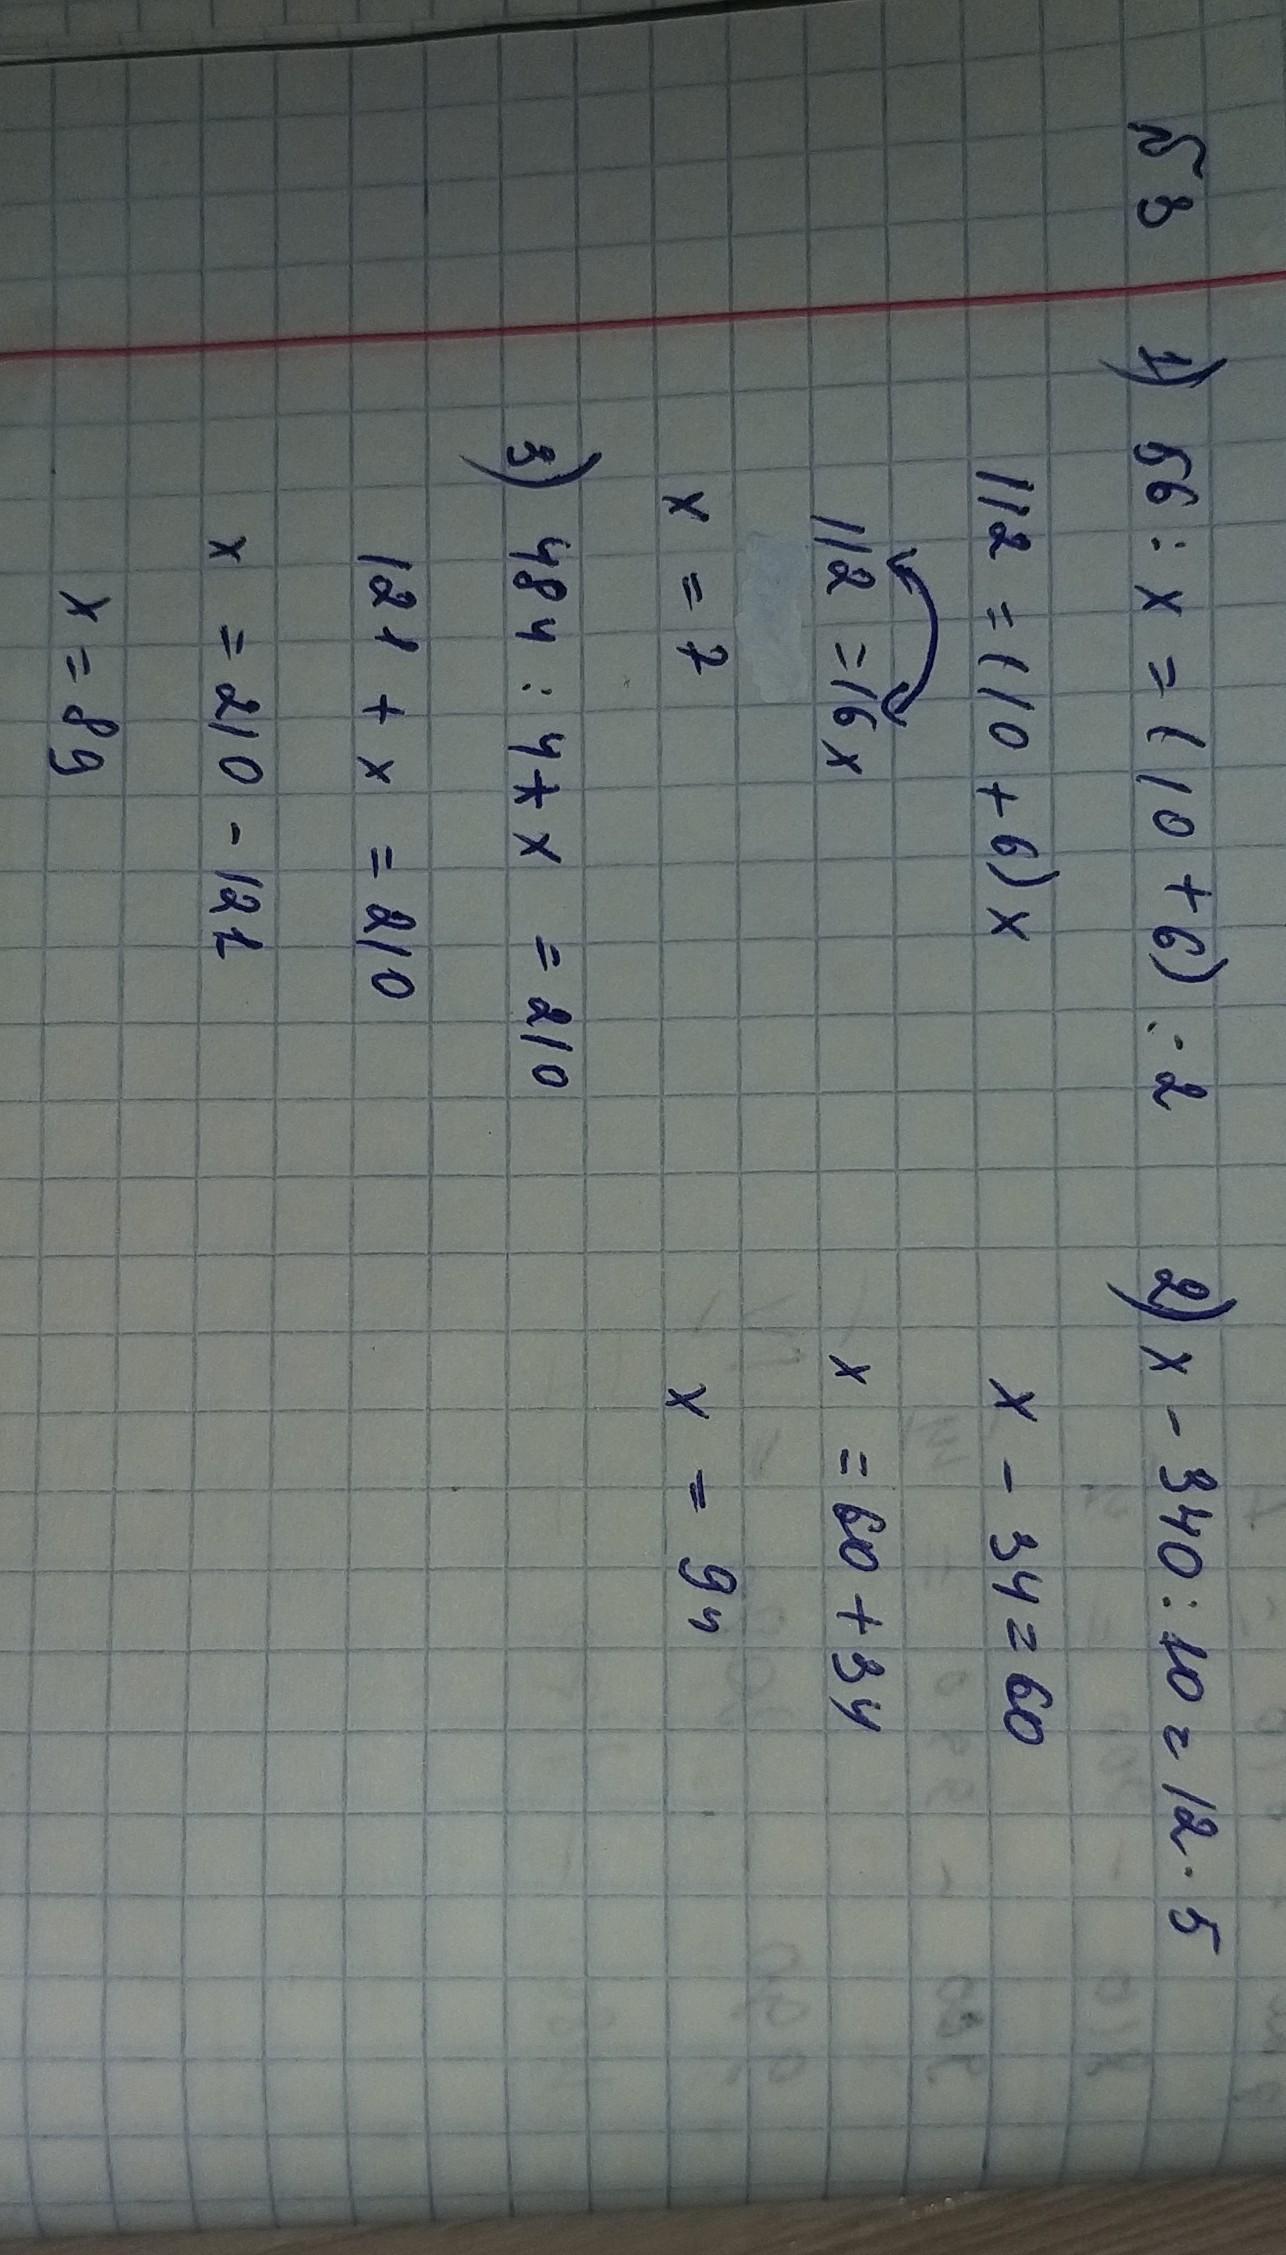 №3 1) 56 : x = (10 + 6) : 2
112 = (10 + 6) x
112 = 16 x
x = 7
2) x - 340 : 10 = 12 · 5
x - 34 = 60
x = 60 + 34
x = 94
3) 484 : 4 + x = 210
121 + x = 210
x = 210 - 121
x = 89